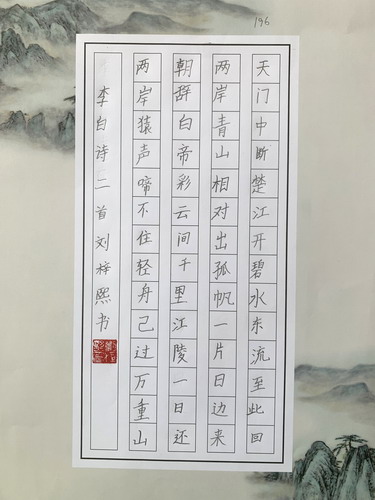 196
天门中断楚江开碧水东流至此回
两岸青山相对出孤帆一片日边来
朝辞白帝彩云间千里江陵一日还
两岸猿声啼不住轻舟已过万重山
李白诗二首刘梓熙书